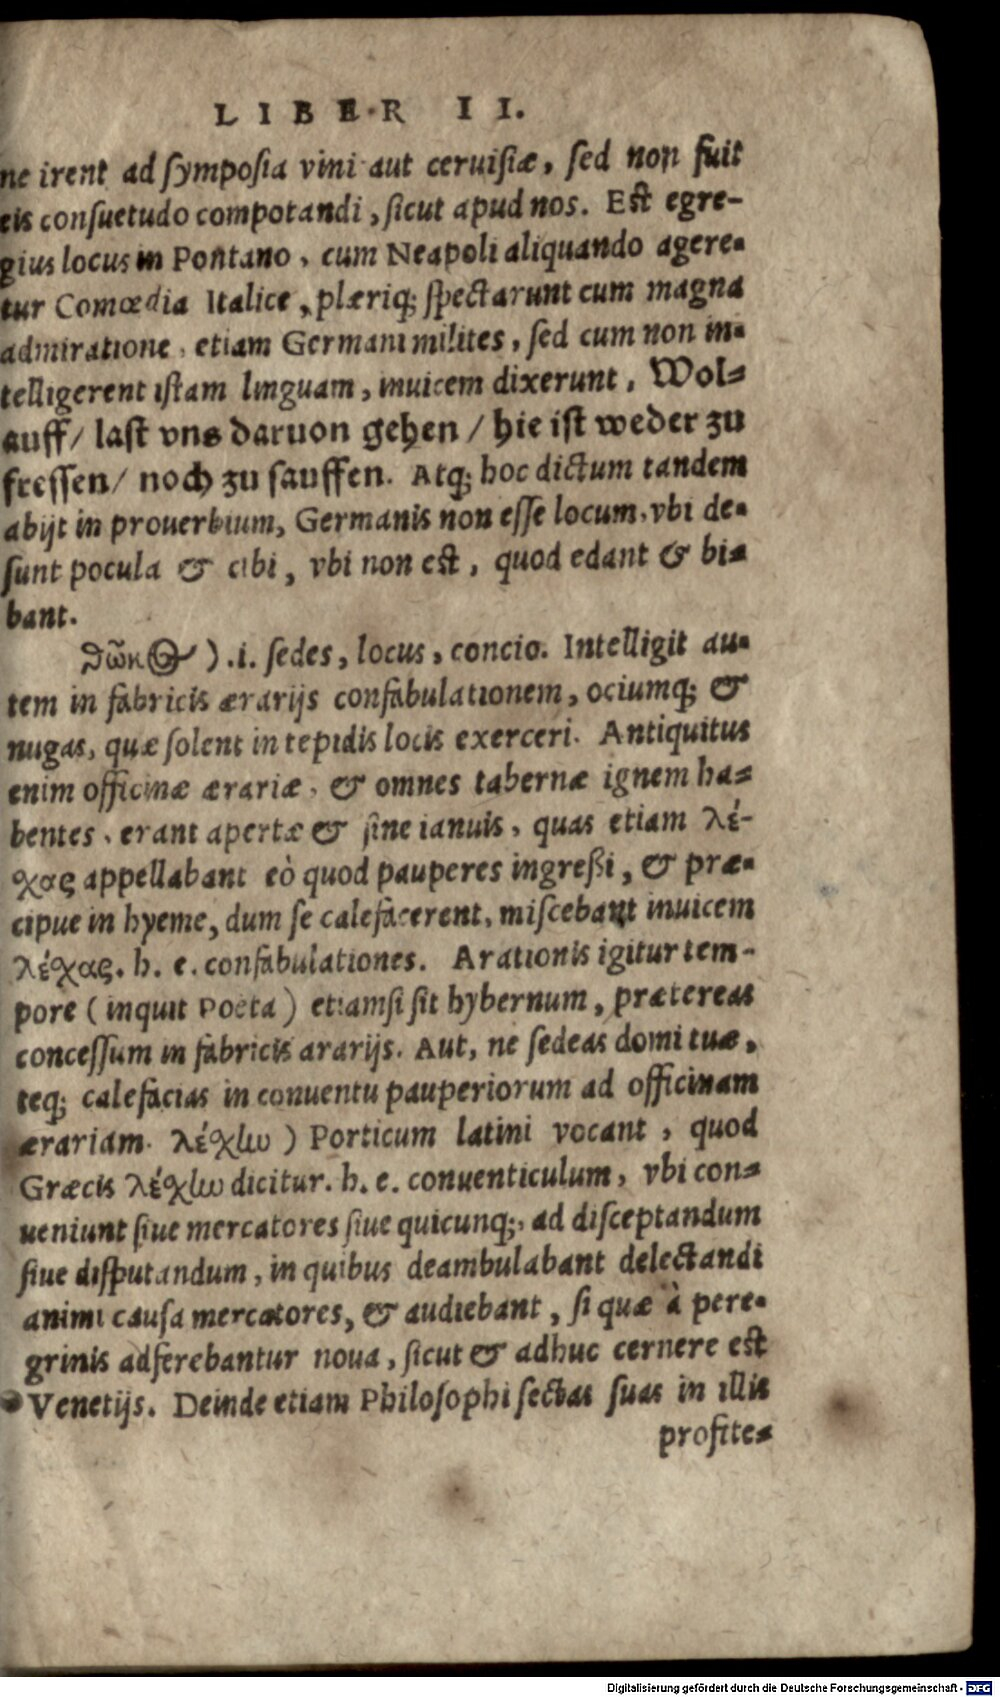 LIBER II.
ne irent ad symposia vini aut ceruisiæ, sed non fuit
eis consuetudo compotandi, sicut apud nos. Est egre-
gius locus in Pontano, cum Neapoli aliquando agere-
tur Comœdia Italice, plæriq; spectarunt cum magna
admiratione, etiam Germani milites, sed cum non in-
telligerent istam linguam, inuicem dixerunt, Wol-
auff/ last vns daruon gehen / hie ist weder zu
fressen/ noch zu sauffen. Atq; hoc dictum tandem
abijt in prouerbium, Germanis non esse locum, vbi de-
sunt pocula & cibi, vbi non est, quod edant & bi-
bant.
θῶκος ) .i. sedes, locus, concio. Intelligit au-
tem in fabricis ærarijs confabulationem, ociumq; &
nugas, quæ solent in tepidis locis exerceri. Antiquitus
enim officinæ ærariæ, & omnes tabernæ ignem ha-
bentes, erant apertæ & sine ianuis, quas etiam λέ-
χας appellabant eò quod pauperes ingreßi, & præ-
cipue in hyeme, dum se calefacerent, miscebant inuicem
λέχας. h. e. confabulationes. Arationis igitur tem-
pore ( inquit Poëta ) etiamsi sit hybernum, prætereas
concessum in fabricis ærarijs. Aut, ne sedeas domi tuæ,
teq; calefacias in conuentu pauperiorum ad officinam
ærariam. λέχην ) Porticum latini vocant, quod
Græcis λέχην dicitur. h. e. conuenticulum, vbi con-
ueniunt siue mercatores siue quicunq;, ad disceptandum
siue disputandum, in quibus deambulabant delectandi
animi causa mercatores, & audiebant, si quæ à pere-
grinis adferebantur noua, sicut & adhuc cernere est
Venetijs. Deinde etiam Philosophi sectas suas in illis
profite-
Digitalisierung gefördert durch die Deutsche Forschungsgemeinschaft - DFG